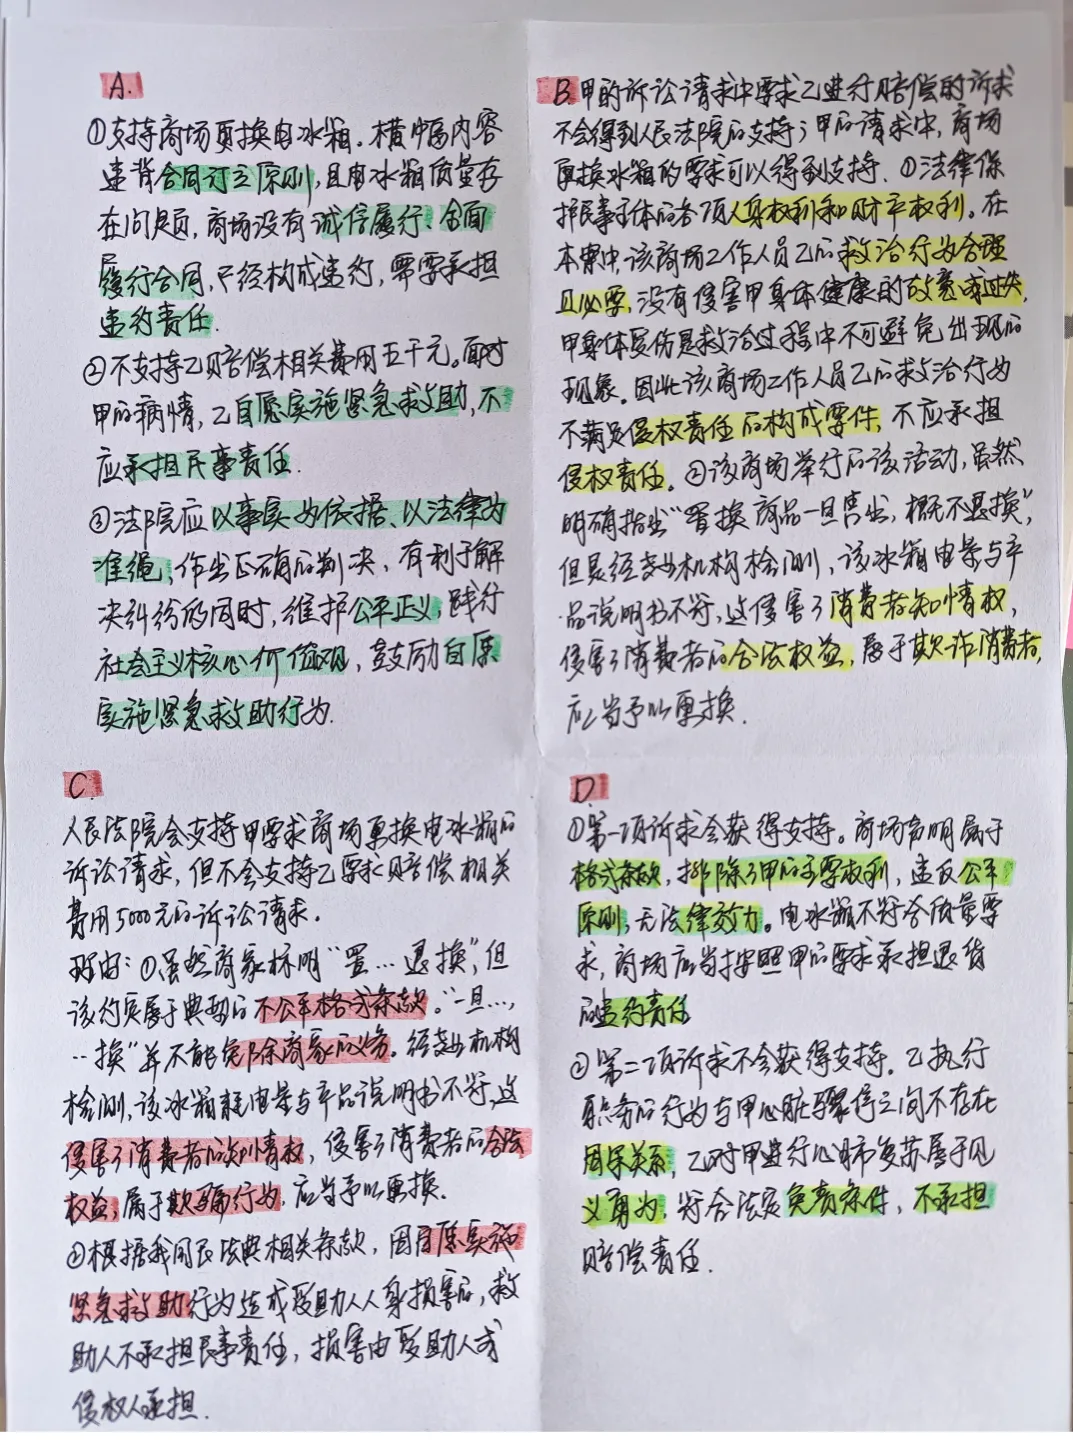 A.
①支持商场更换电冰箱。横幅内容
违背合同订立原则,且电冰箱质量存
在问题,商场没有诚信履行、全面
履行合同,已经构成违约,需要承担
违约责任.
②不支持乙赔偿相关费用五千元。面对
甲的病情,乙自愿实施紧急救助,不
应承担民事责任.
③法院应以事实为依据、以法律为
准绳,作出正确的判决,有利于解
决纠纷的同时,维护公平正义,践行
社会主义核心价值观,鼓励自愿
实施紧急救助行为.
B.甲的诉讼请求中要求乙进行赔偿的诉求
不会得到人民法院的支持;甲的请求中,商场
更换冰箱的要求可以得到支持.①法律保
护民事主体的各项人身权利和财产权利。在
本案中,该商场工作人员乙的救治行为合理
且必要,没有侵害甲身体健康的故意或过失,
甲身体受伤是救治过程中不可避免出现的
现象。因此该商场工作人员乙的救治行为
不满足侵权责任的构成要件,不应承担
侵权责任.②该商场举行的该活动,虽然
明确指出“置换商品一旦售出,概不退换”,
但是经专业机构检测,该冰箱电量与产
品说明书不符,这侵害了消费者知情权,
侵害了消费者的合法权益,属于欺诈消费者,
应当予以更换.
C.
人民法院会支持甲要求商场更换电冰箱的
诉讼请求,但不会支持乙要求赔偿相关
费用5000元的诉讼请求.
理由:①虽然商家标明“置…退换”,但
该约定属于典型的不公平格式条款。“一旦…,
…换”并不能免除商家的义务。经专业机构
检测,该冰箱耗电量与产品说明书不符,这
侵害了消费者的知情权,侵害了消费者的合法
权益,属于欺骗行为,应当予以更换.
②根据我国民法典相关条款,因自愿实施
紧急救助行为造成受助人人身损害的,救
助人不承担民事责任,损害由受助人或
侵权人承担.
D
①第一项诉求会获得支持。商场声明属于
格式条款,排除了甲的主要权利,违反公平
原则,无法律效力。电冰箱不符合质量要
求,商场应当按照甲的要求承担退货
的违约责任
②第二项诉求不会获得支持.乙执行
职务的行为与甲心脏骤停之间不存在
因果关系,乙对甲进行心肺复苏属于见
义勇为,符合法定免责条件,不承担
赔偿责任.